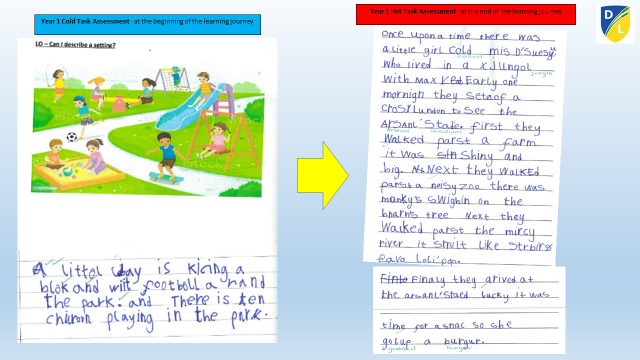 Year 1 Cold Task Assessment - at the beginning of the learning journey
LO – Can I describe a setting?
A littol bay is kicing a
blak and wiit football a rand
the park. and There is ten
playing in the park.
Year 1 Hot Task Assessment - at the end of the learning journey
Once upon a time there was
a little girl cold mis
who lived in a Jungol
jungle
with Max Early one
mornigh they setof a
to see the
Arsanl' Stade. first they
Walked parst a farm
it was Shiny and
big. Next they walked
parst a noisy zoo there was
mankys swighin on the
tree Next they
Walked parst the mircy
river it smilt like
favo Loli'pop.
Finaly they arived at
the arsanl' staed lucky it was
time for a snac so she
a burgur.
burger
DL